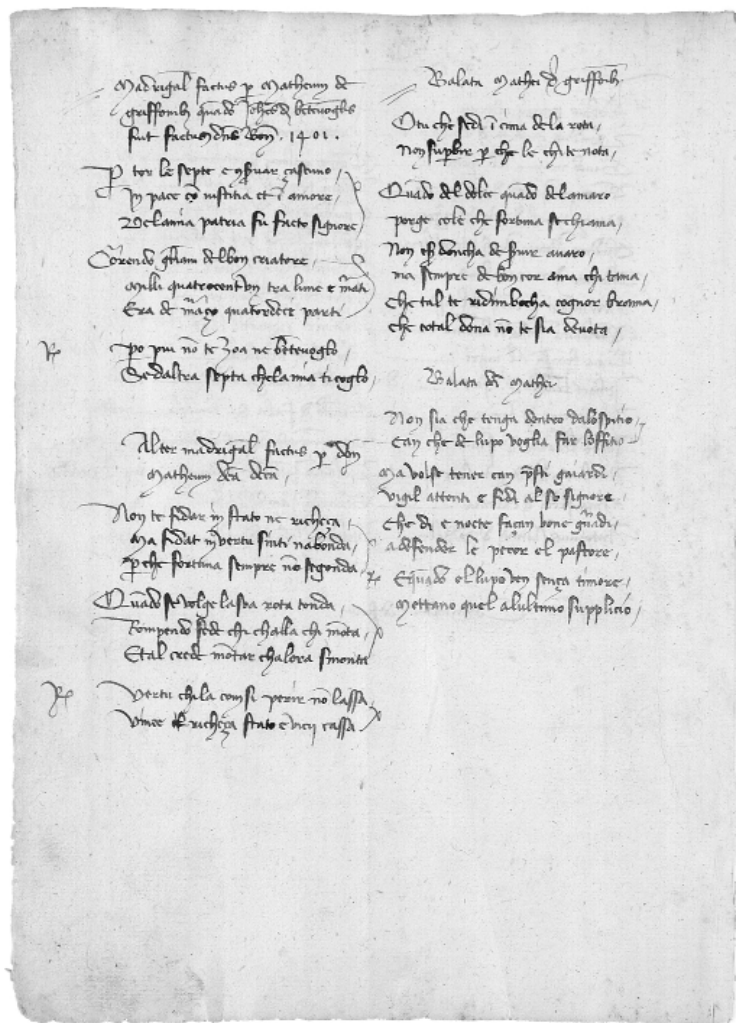 Madrigal factus p Matheum de
griffonib quado Johes d bētevoglis
fuit factus dñs Bon . 1401 .
P tor le septe e ꝯservar cascuno
In pace cō iustitia et ī amore
De la mia patria fu facto signore
Corendo gli ani del bon criatore
Milli quatrocent un tra lune e mati
Era de março quatordece parti
R
Po piu nō te zoa ne bētevoglo
Se daltra septa che la mia ti coglo
Alter madrigal factus p dōm
Matheum
Non te fidar in stato ne richeça
Ma fidat in vertu sinti nabonda
P che fortuna sempre nō segonda
Quādo se volge la sva rota tonda
Rompendo fede chi challa chi mōta
Etal crede mōtar chalora smonta
R
Vertu chi la com si perir nō lassa
Vince richeça stato e vicij cassa
Balata Mathei d griffonib
O tu che sedi ī cima de la rota
Non superbir p che le chi te nota
Quādo del dolce quādo del amaro
porge colē che fortuna se chiama
Non doncha de avaro
ma sempre de bon cor ama chi tama
Che tal te ridim bocha cognor brama
che cotal dōna nō te sia devota
Balata Mathei
Non sia che tenga dentro dalospitio
Can che de lupo voglia far loffitio
Ma volse tener can gaiardi
Vigil attenti e fidi al so signore
Che di e nocte façan bone guardi
a defender le pecor el pastore
R
E quado el lupo ven sença timore
Mettano quel a lultimo supplicio